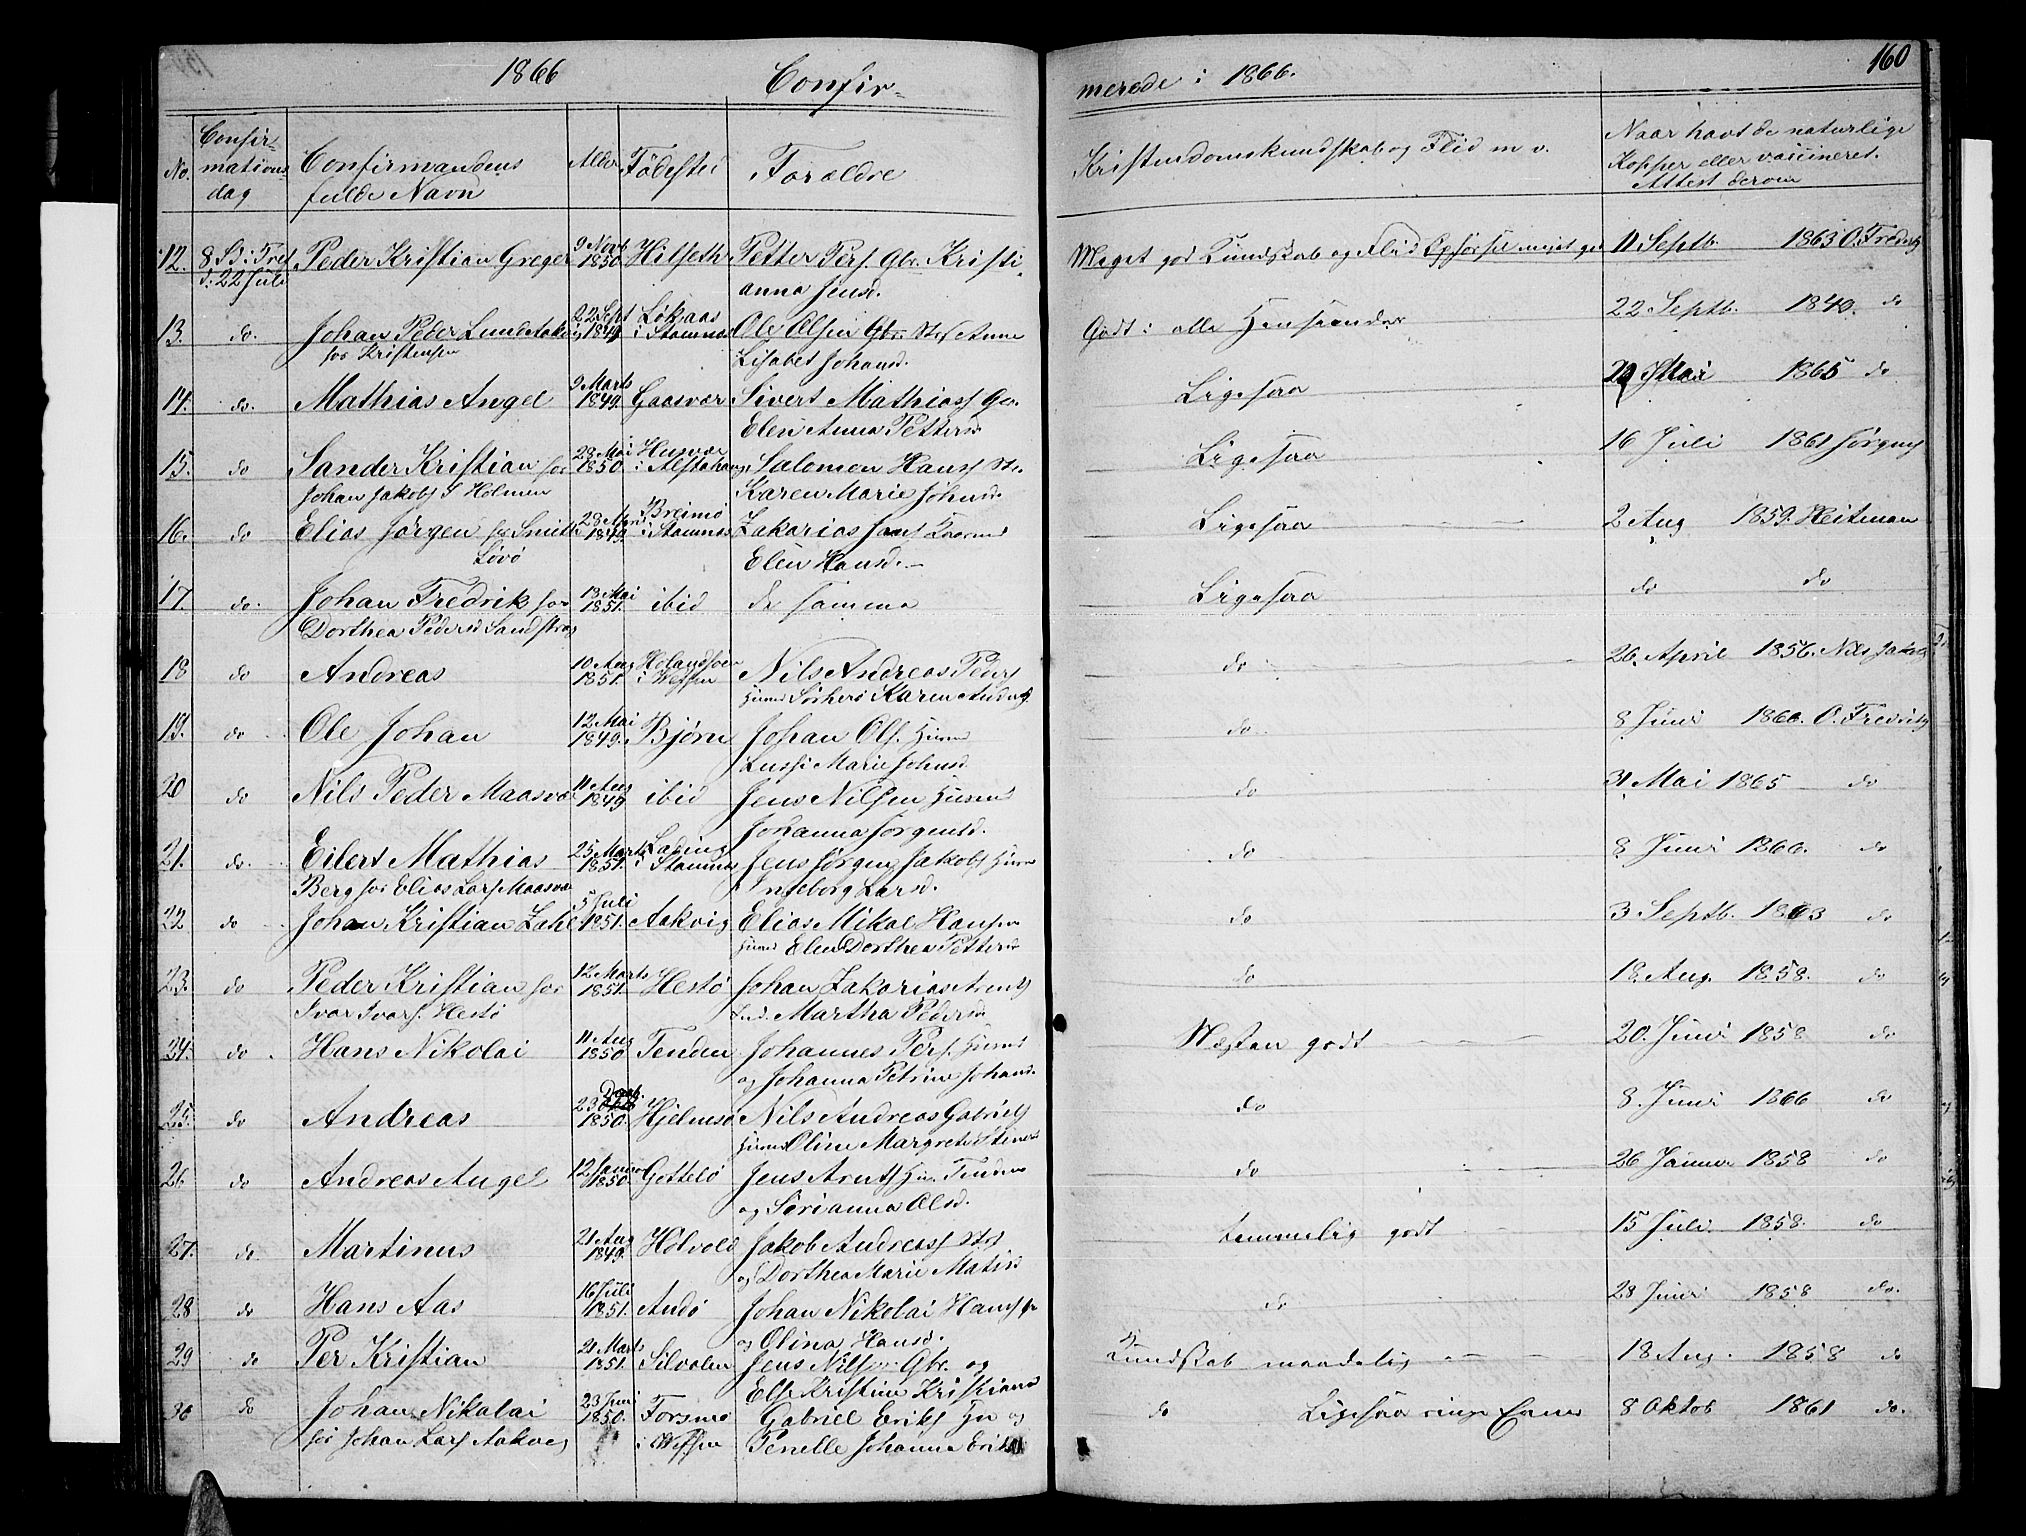 1866 Confir-
merede i 1866. 160
No. Confirmationsdag Confirmandens fulde Navn Alder Fødested Forældre Kristendomskundskab og Flid m v. Naar havt de naturlige Kopper eller vaccineret. Attest derom
12. 8 S. i Tref d: 22 Juli Peder Kristian Greger 9 Novb 1850 Hilseth Petter Pers. Gbr. Kristi- Meget god Kundskab og Flid Opførsel meget god 11 Septb. 1863 O. Fredr
anna Jensd.
13. do. Johan Peder Lund Aakvig 22 Sept 1849 Løkaas i Stamnes Ole Olsen Gbr. Anne Godt i alle Henseender 22 Septb. 1849. do
for Kristensen Lisabet Johansd.
14. do. Mathias Angel 9 Marts 1849. Gaasvær Sivert Mathiass Gbr. Ligesaa Mai 1865 do
Elen Anna Pettersd.
15. do Sander Kristian for 28 Mai 1850. Husvær i Alstahaug Salomon Hanss Ligesaa 16 Juli 1861 Jørgens
Johan Jakobs S Holmen Karen Marie Johnsd.
16. do Elias Jørgen for Smith 1849. Breimo i Stamnes Zakarias Ligesaa 2 Aug 1859. Heitman
Løvø Elen Hansd.
17. do. Johan Fredrik for 13 Mai 1851. ibid de samme Ligesaa do do
Dorthea Pedersd Sandstrag
18 do Andreas 10 Aug 1851. i Wefsen Nils Andreas Peders do 26. April 1856. Nils Jakobs
Huusmd Sørherø Karen Andersd
19. do Ole Johan 12 Mai 1849. Bjørn Johan Ols. Huusmd do 8 Juni 1866. O. Fredriks
Lussi Marie Johnsd.
20 do Nils Peder Maasvæ 11 Aug 1849 ibid Jens Nilsen Huusmd do 31 Mai 1865 do
Johanna Jørgensd.
21. do. Eilert Mathias 25 Marts 1851. Lading i Stamnes Jens Jørgen Jakobs Huusm do 8 Juni 1866. do
Berg for Elias Lars Maasvæ Ingeborg Larsd.
22 do Johan Kristian Zahl 5 Juli 1851. Aakvig Elias Mikal Hansen do 3 Septb. 1863 do
Huusmd Elen Dorthea Pettersd
23. do Peder Kristian for 12 Marts 1851. Hestø Johan Zakarias Arents do 18. Aug. 1858. do
Ivar Ivars. Hestø Ind. Martha Pedersd
24. do. Hans Nikolai 11 Aug 1850 Tenden Johannes Pers. Huusmd Næsten godt 20. Juni 1858 do
og Johanna Petrine Johansd.
25. do Andreas 23 Decb. 1850. Hjelmsø Nils Andreas Gabriels do 8. Juni 1866 do
Huusmd Oline Margrete
26 do Andreas Angel 12 Januar 1850. Gottelø Jens Arnts Tenden do 26 Januar 1858 do
og Serianna Olsd.
27. do Martinus 21 Aug 1849. Holvold Jakob Andreass temmelig godt 15 Juli 1858. do
og Dorthea Marie
28 do Hans Aas 16 Juli 1851. Andø Johan Nikolai Hanss do 28 Juni 1858 do.
og Olina Hansd.
29 do Per Kristian 21 Marts 1851. Silvalen Jens Nils Gbr. og Kundskab maadelig 18 Aug. 1858 do
Else Kristine Kristiansd
30 do Johan Nikolai 23 Juni 1850. Forsmo Gabriel Eriks og do Ligesaa ringe Evner 8 Oktob 1861 do.
for Johan Lars Aakvig i Wefsen Penelle Johanna Eriksd